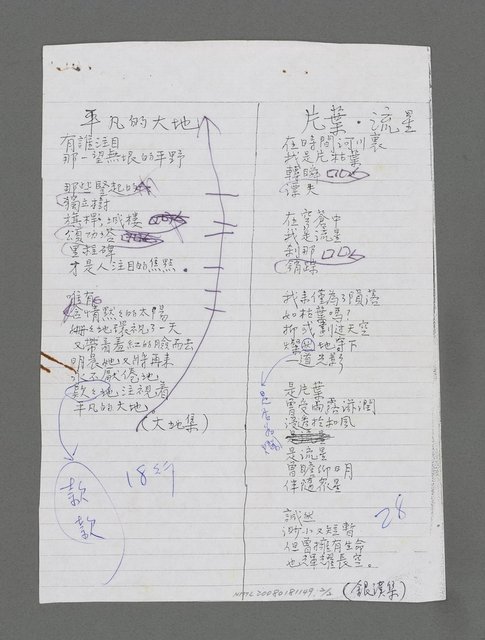 平凡的大地
有誰注目
那一望無垠的平野
那些豎起的
獨立樹
旗桿,城樓
頌功塔
里程碑
才是人注目的焦點.
唯有
含情默々的太陽
姍々地環視了一天
又帶着羞紅的臉而去
明晨她又將再來
永不厭倦地
款々地注視着
平凡的大地
(大地集)
款款
18行
片葉・流星
在時間河川裏
我是片枯葉
轉瞬
漂失
在穹蒼中
我是流星
刹那
銷蹤
我來僅為了殞落
如枯葉嗎?
抑或劃過天空
燦然地留下
一道光影
是否
是片葉
曾受雨露滋潤
是流星
曾瞻仰日月
伴隨眾星
誠然
渺小又短暫
但曾擁有生命
也輝耀長空。
28
(銀漢集)
NMTL20080181149, 2/3